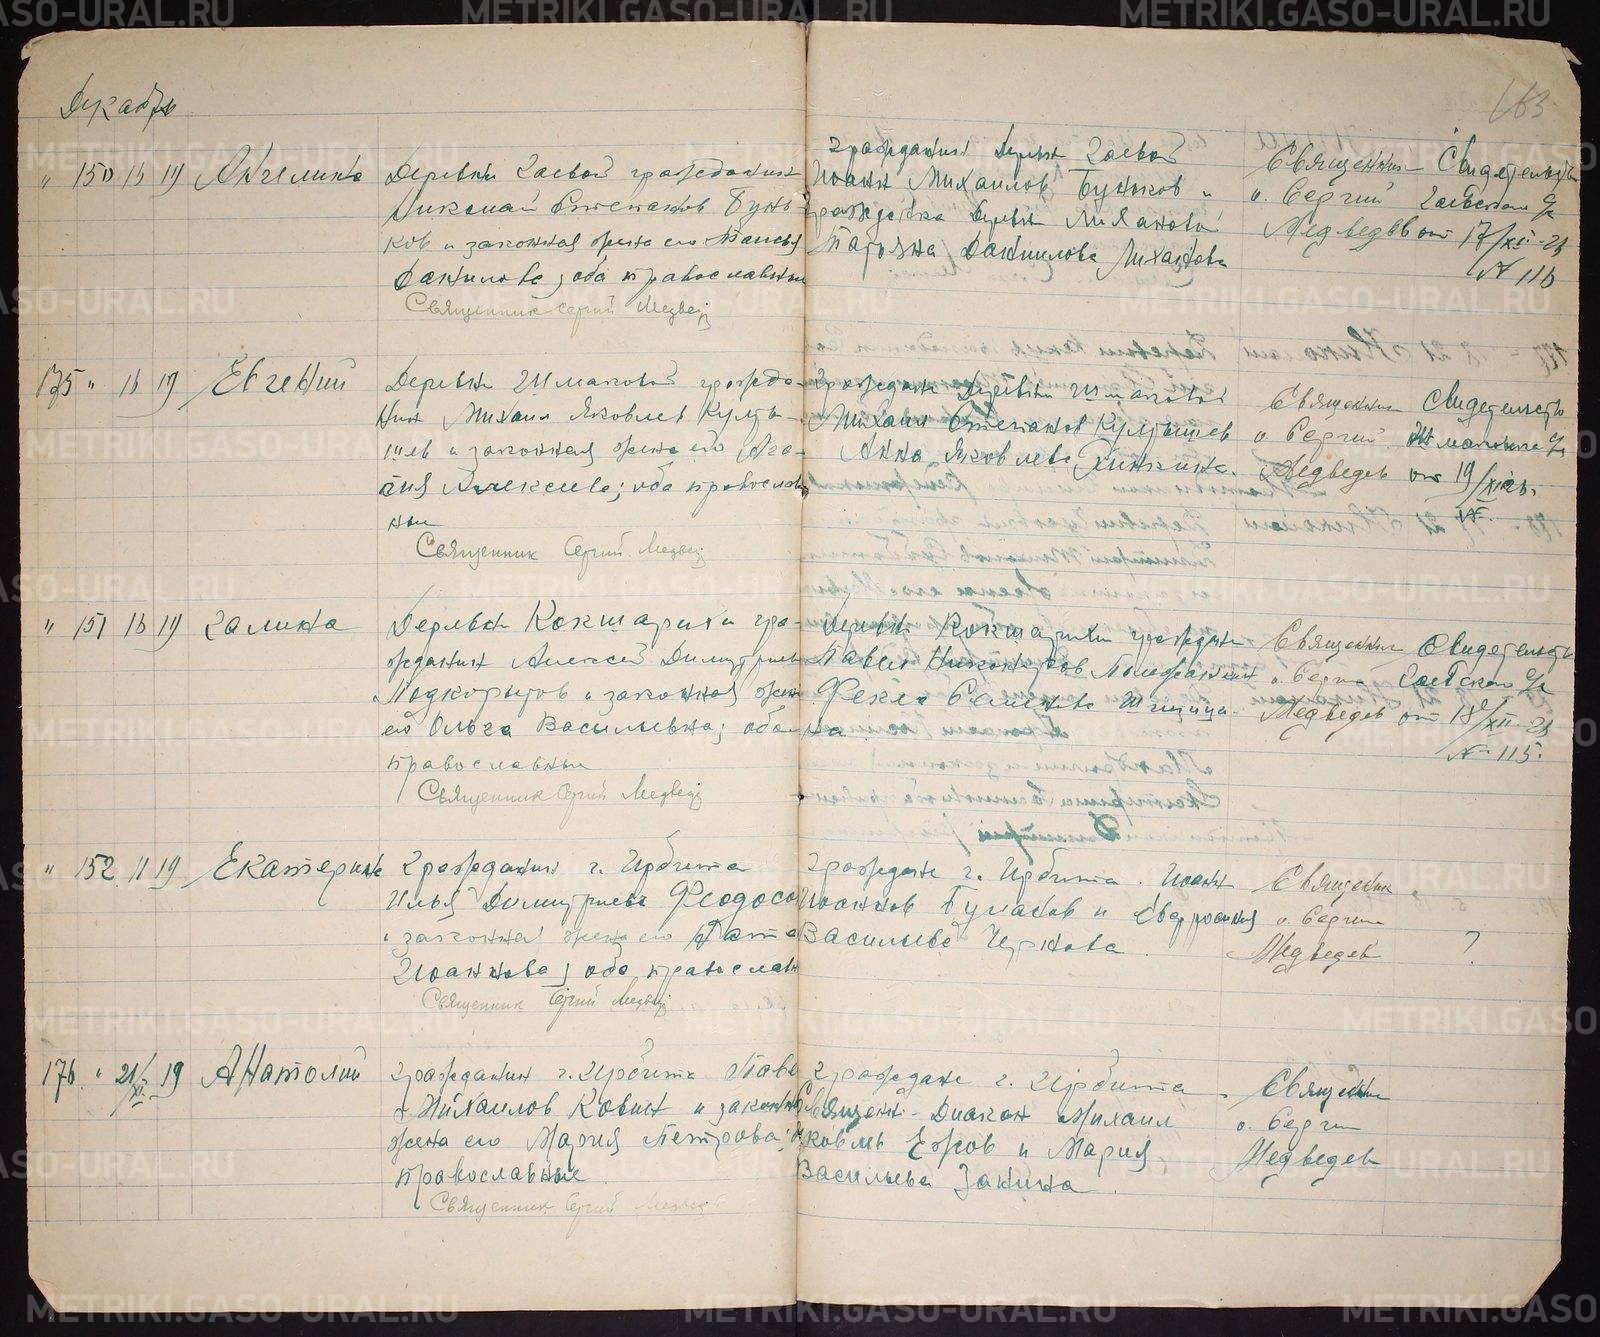 METRIKI.GASO-URAL.RU
Декабрь
163
" 150 16 19 Ангелина
Деревни Гаевой гражданин
Николай Степанов Бунь-
ков и законная жена его Таисья
Данилова; оба православны
Священник Сергий Медведев
граждани Деревни Гаевой
Иоанн Михаилов Буньков и
гражданка Деревни
Татьяна Даниилова Михайлова
Священник
о. Сергий
Медведев
Свидетельство
Гаевского с/с
от 17/XII-25
№ 116
175 " 16 19 Евгений
Деревни Шмаковой гражда-
нин Михаил Яковлев Култы-
шев и законная жена его Ага-
Алексеева; оба православ-
ны
Священник Сергий Медведев
Граждане Деревни Шмаковой
Михаил Степанов Култышев
Анна Яковлева
Священник
о. Сергий
Медведев
Свидетельство
Шмаковского с/с
от 19/XII 25.
№
" 151 16 19 Галина
Деревни Кокшарихи гра-
жданин Алексей Димитриев
Подкорытов и законная жена
его Ольга Васильевна; оба
православны
Священник Сергий Медведев
Деревни Кокшарихи граждани
Павел
Фекла Семенова
Священник
о. Сергий
Медведев
Свидетельство
Гаевского с/с
от 18/XII-25
№ 115.
" 152 11 19 Екатерина
Гражданин г. Ирбита
Илья Димитриев Феодосо
и законная жена его
Иоаннова; оба православн
Священник Сергий Медведев
Граждане г. Ирбита. Иоанн
Иоаннов Булаков и Евфросиния
Васильева Чернова.
Священник
о. Сергий
Медведев
?
176. " 21/XI 19 Анатолий
Гражданин г. Ирбита Паве
л Михаилов Ковин и законная
жена его Мария Петрова; о
православные.
Священник Сергий Медведев
Граждане г. Ирбита
Священн.-Диакон Михаил
Яковлев Ежов и Мария
Васильева Зонина.
Священник
о. Сергий
Медведев